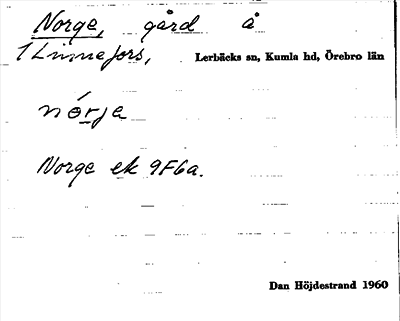 Norge, gård å
1 Linnefors, Lerbäcks sn, Kumla hd, Örebro län
nórje
Norge ek 9F6a.
Dan Höjdestrand 1960